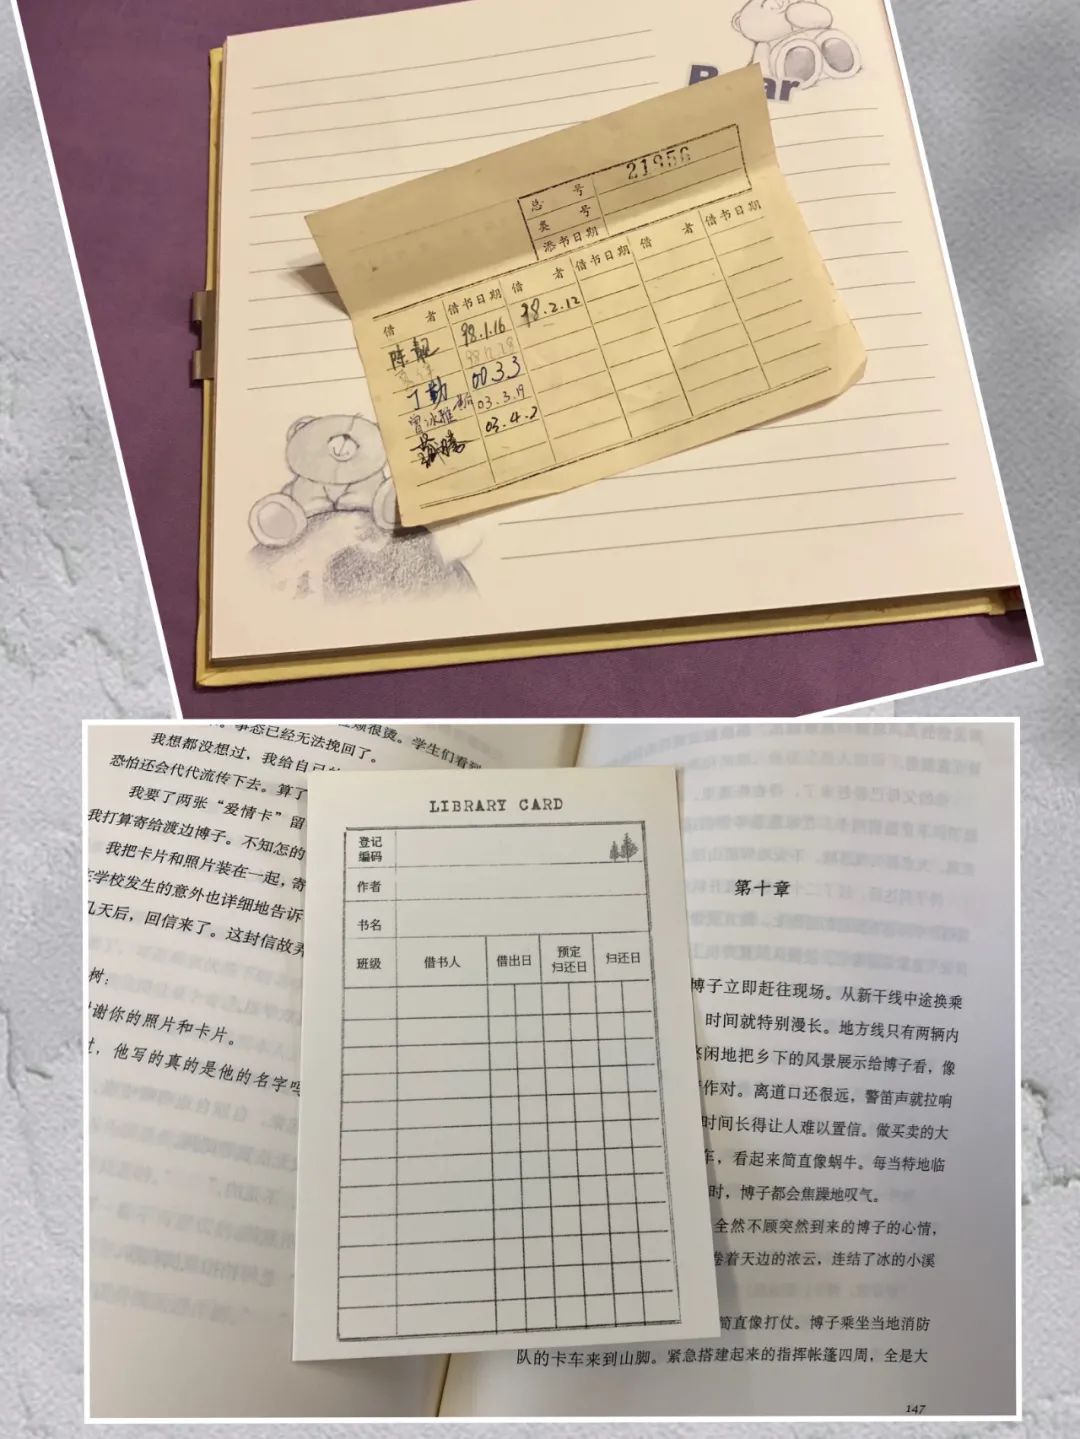 总 号 21956
类 号
添书日期
借 者 借书日期 借 者 借书日期 借 者 借书日期
陈靓 98.1.16 98.2.12
丁勤 00.3.3
曾冰雅 03.3.19
03.4.2
事态已经无法挽回了。
烦很烫。学生们看到
我想都没想过，我给自己
恐怕还会代代流传下去。算了
我要了两张“爱情卡”留
我打算寄给渡边博子。不知怎的
我把卡片和照片装在一起，寄
在学校发生的意外也详细地告诉
几天后，回信来了。这封信故弄
树：
谢你的照片和卡片。
他写的真的是他的名字吗
LIBRARY CARD
登记
编码
作者
书名
班级 借书人 借出日 预定
归还日 归还日
第十章
博子立即赶往现场。从新干线中途换乘
时间就特别漫长。地方线只有两辆内
悠闲地把乡下的风景展示给博子看，像
作对。离道口还很远，警笛声就拉响
时间长得让人难以置信。做买卖的大
车，看起来简直像蜗牛。每当特地临
时，博子都会焦躁地叹气。
全然不顾突然到来的博子的心情，
卷着天边的浓云，连结了冰的小溪
简直像打仗。博子乘坐当地消防
队的卡车来到山脚。紧急搭建起来的指挥帐篷四周，全是大
147